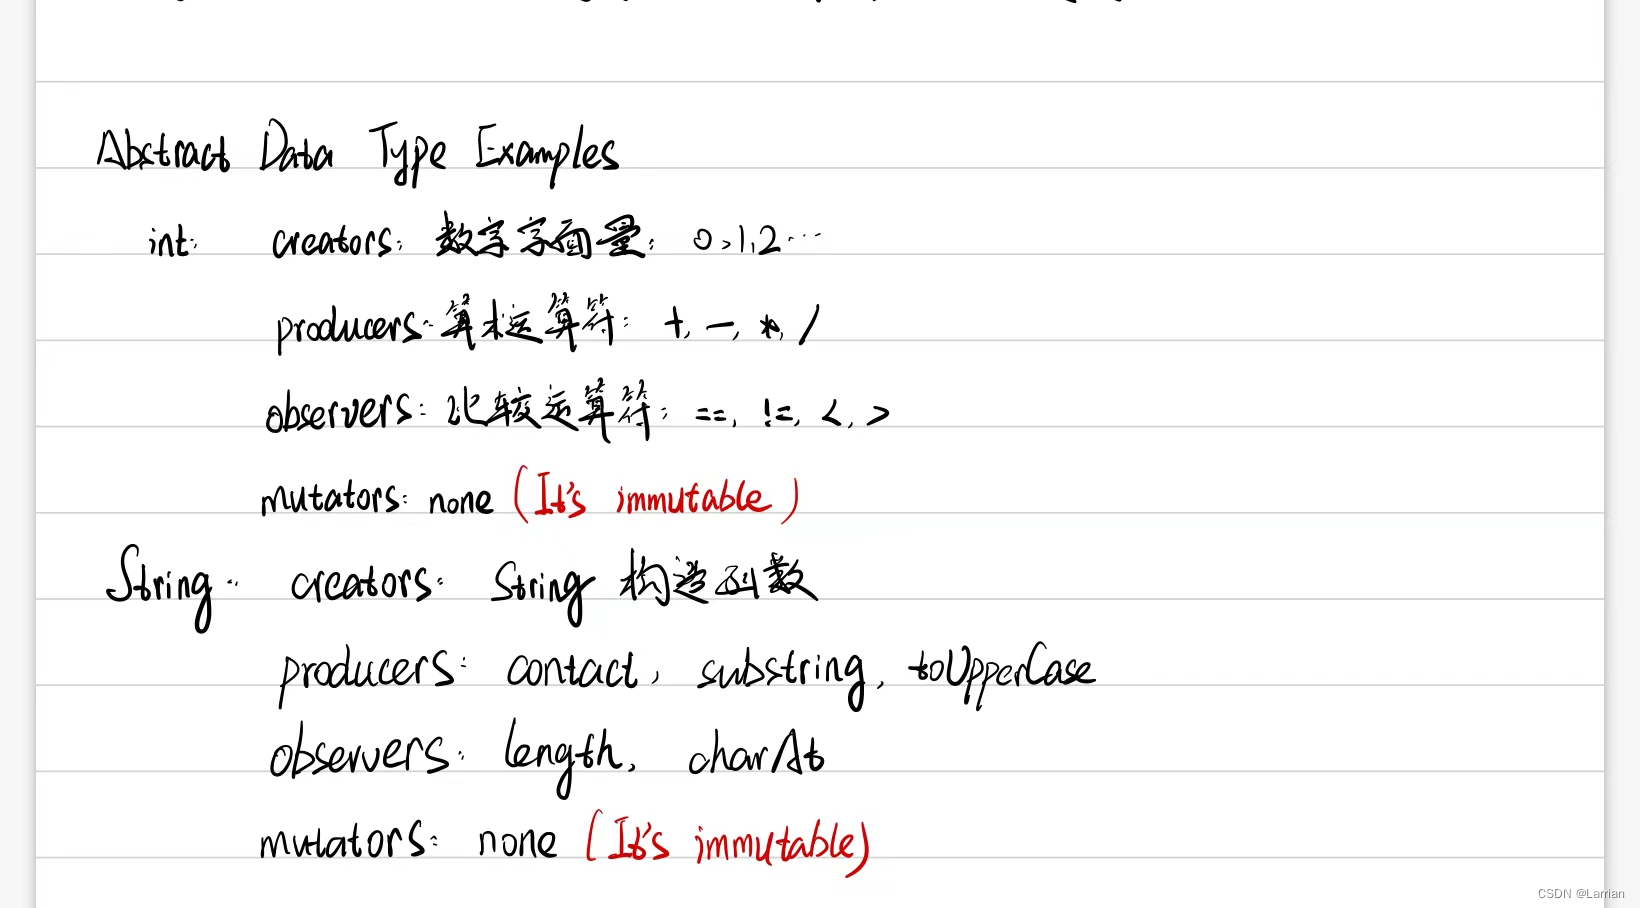 Abstract Data Type Examples
int: creators: 数字字面量: 0,1,2...
producers: 算术运算符: +, -, *, /
observers: 比较运算符: ==, !=, <, >
mutators: none (It's immutable)
String: creators: String 构造函数
producers: contact, substring, toUpperCase
observers: length, charAt
mutators: none (It's immutable)
CSDN @Larrian